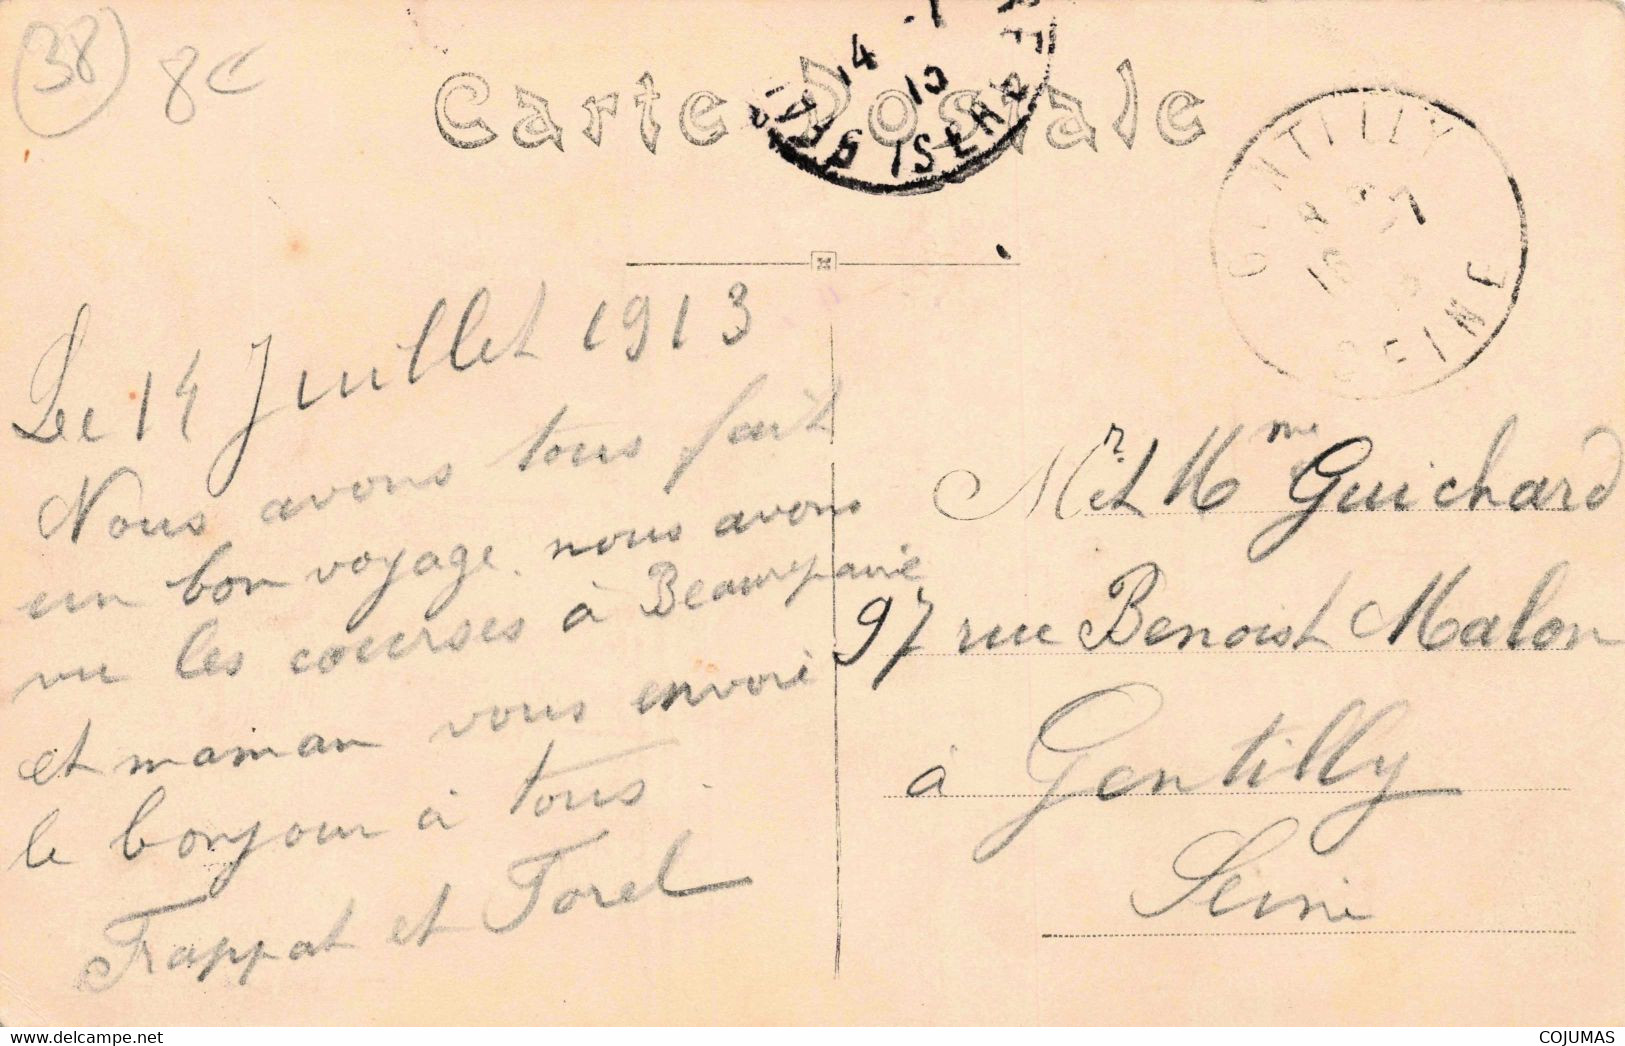 38
8€
Carte Postale
14 - 7
13
ISERE
GENTILLY
7
SEINE
Le 14 Juillet 1913
Nous avons tous fait
un bon voyage. nous avons
vu les courses à Beaurepaire
et maman vous envoie
le bonjour à tous.
Frappat et Forel
Mr et Mme Guichard
97 rue Benoist Malon
à Gentilly
Seine
COJUMAS